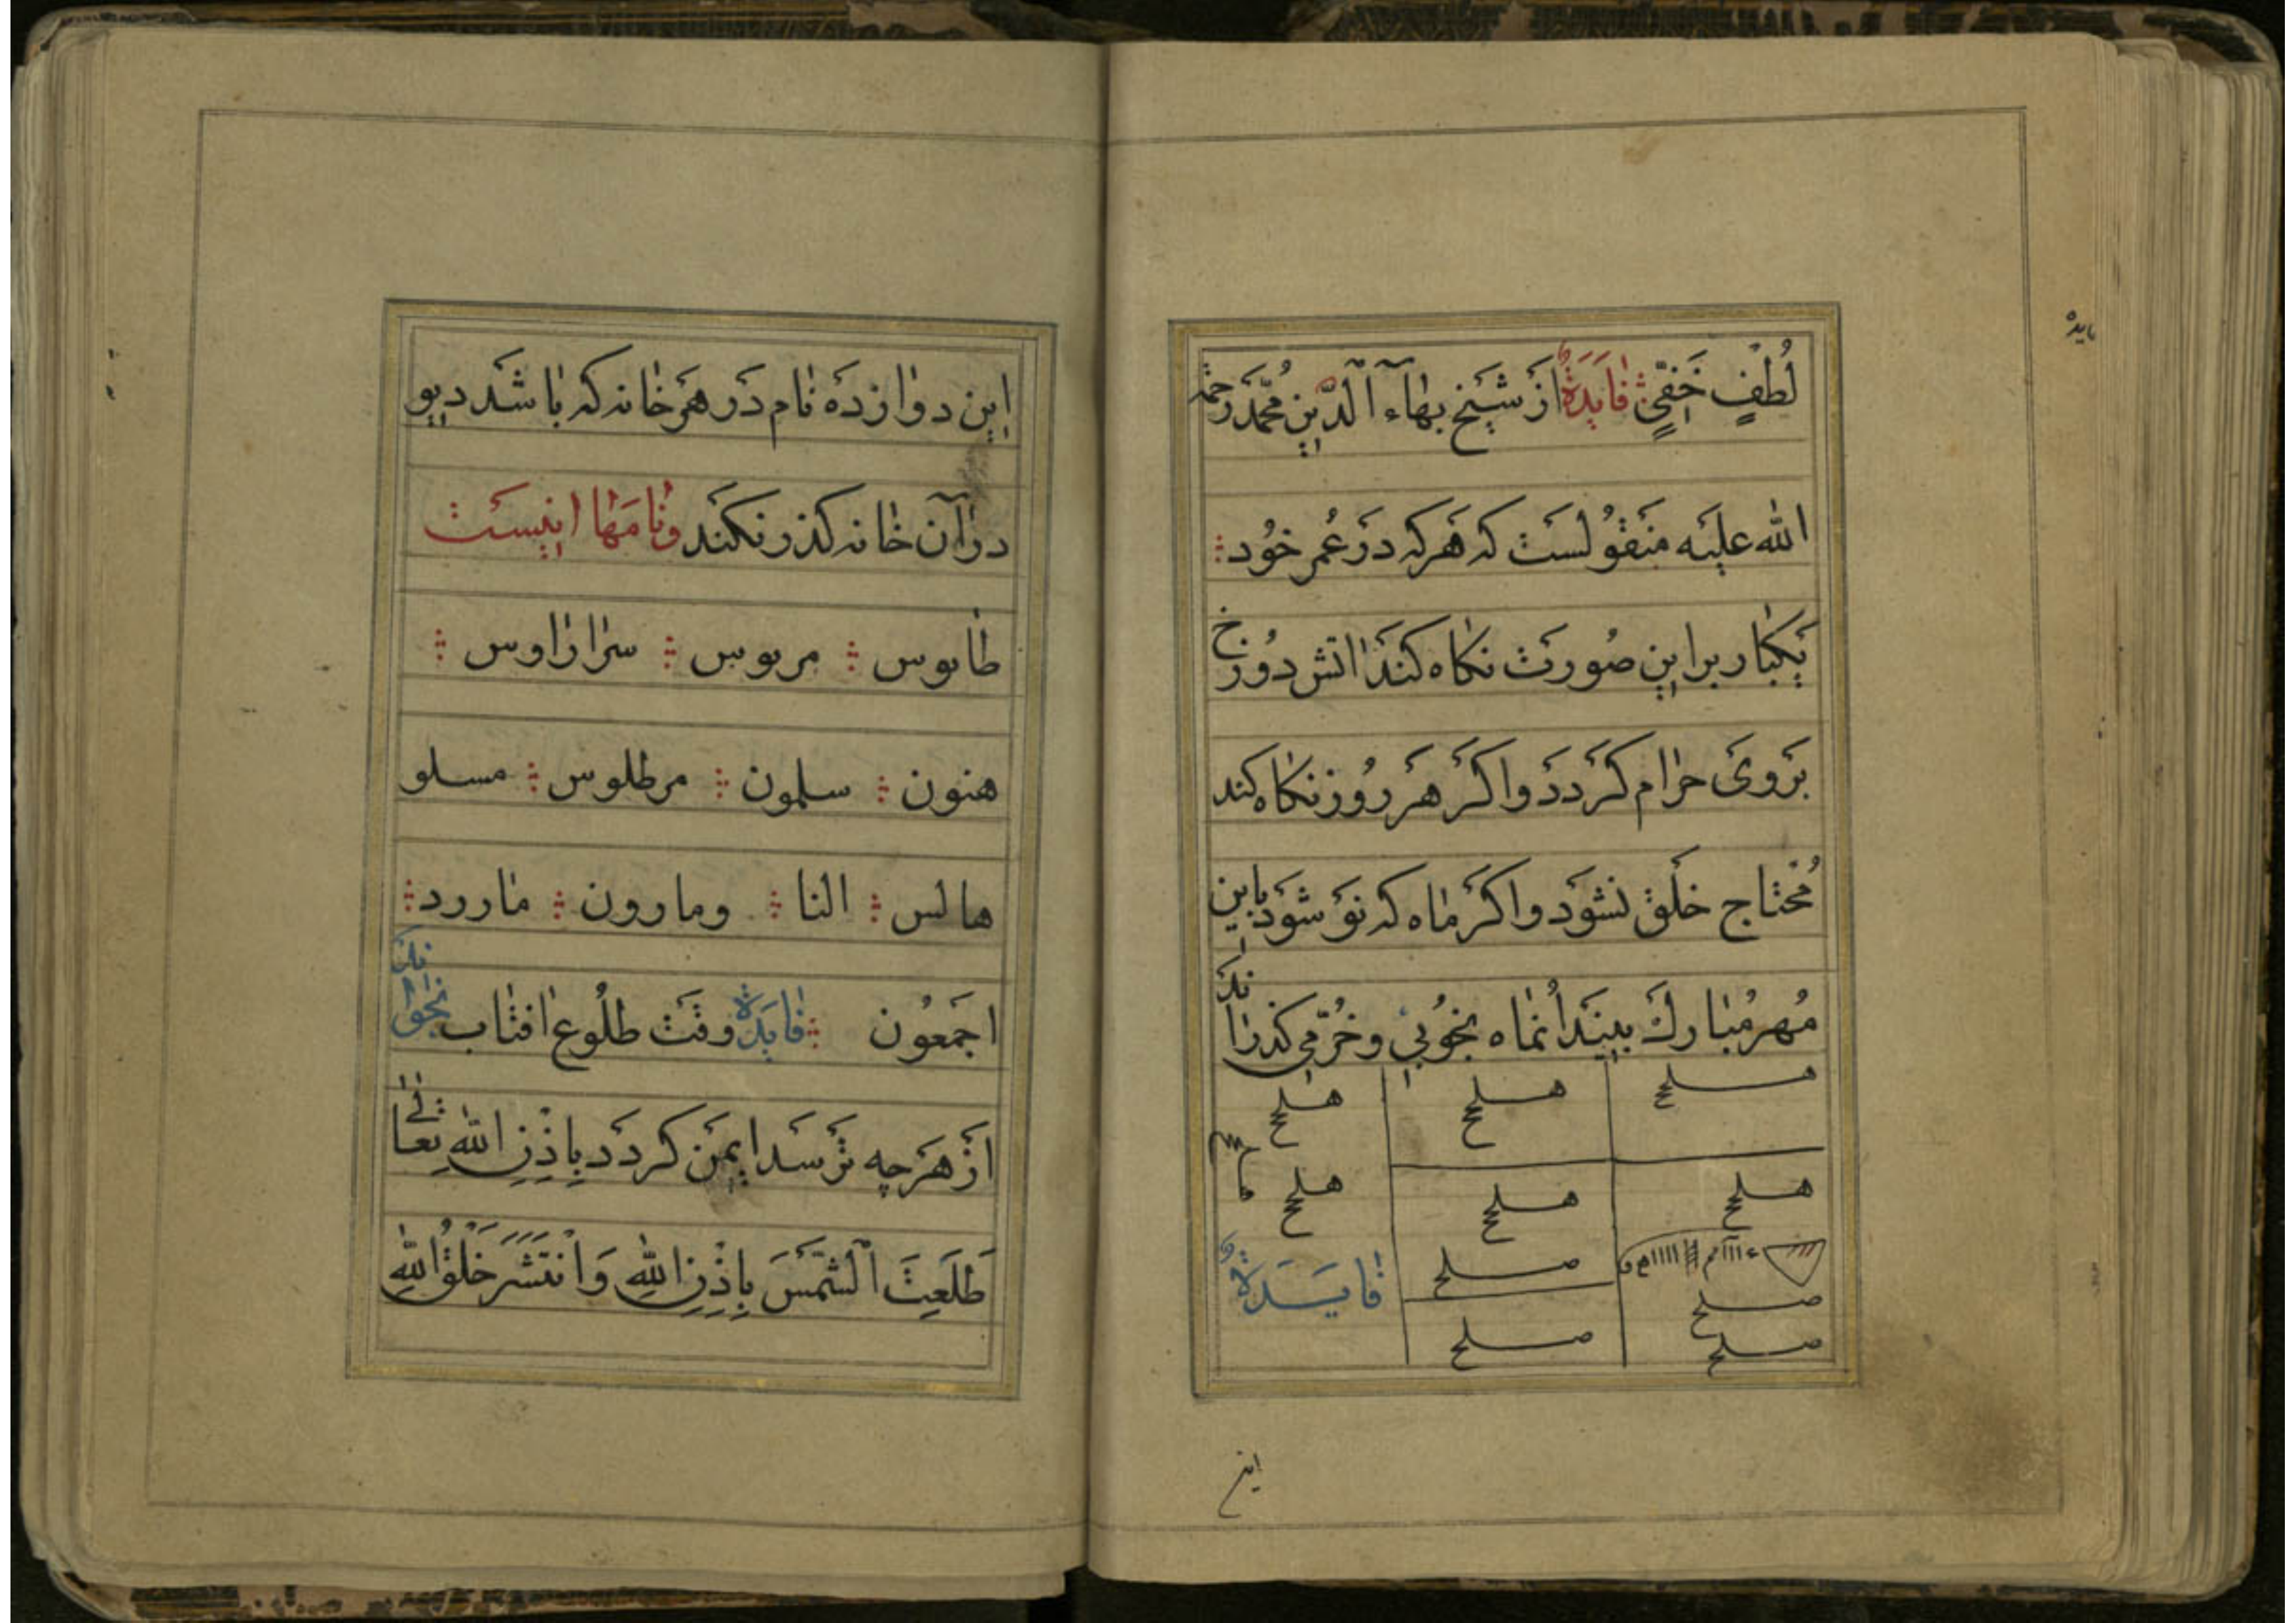 لُطْفٍ خَفِيٍّ فایدَهٔ ازَ شیٖخ بهآء الدّینِ مُحَمَّد رَحمة
الله علیَه منَقوُلسَت که هَرکه درَ عُمر خوُد
یَکبٰار برا این صُورَت نکاه کندَ اتش دوُزخ
برَویَ حرٰام کرَددَ واکرَ هرَ روُز نکاه کند
مُحتٰاج خَلق نشوَد واکرَ مٰاه که نوَ شوَد باین
مُهر مُبارك بیندَ انمٰاه بخوُبی وخرّمی کذرٰاند
هلح هلح هلح
هلح هلح هلح
صلح
صلح صلح
صلح
فایَدهٔ
این
این دوازدَه نٰام دَر هرَ خٰانه که بٰا شدَ دیو
درآن خٰانه کذر نکنَد ونٰامَهٰا اینیسَت
طابوس مربوس سرارٰاوس
هنون سلمون مرطلوس مسلو
هالس النا ومارون مٰاررد
اجمَعوُن فایدَهٔ وقتَ طلوُع افتٰاب بخوٰاند
ازَ هرَچه ترَسدَ ایمنَ کردَد بِاِذِنِ اللهِ تعٰالیٰ
طَلَعَتِ الشَّمْسَ بِاِذِنِ اللهِ وَانْتَشَرَ خَلْقُ اللهِ